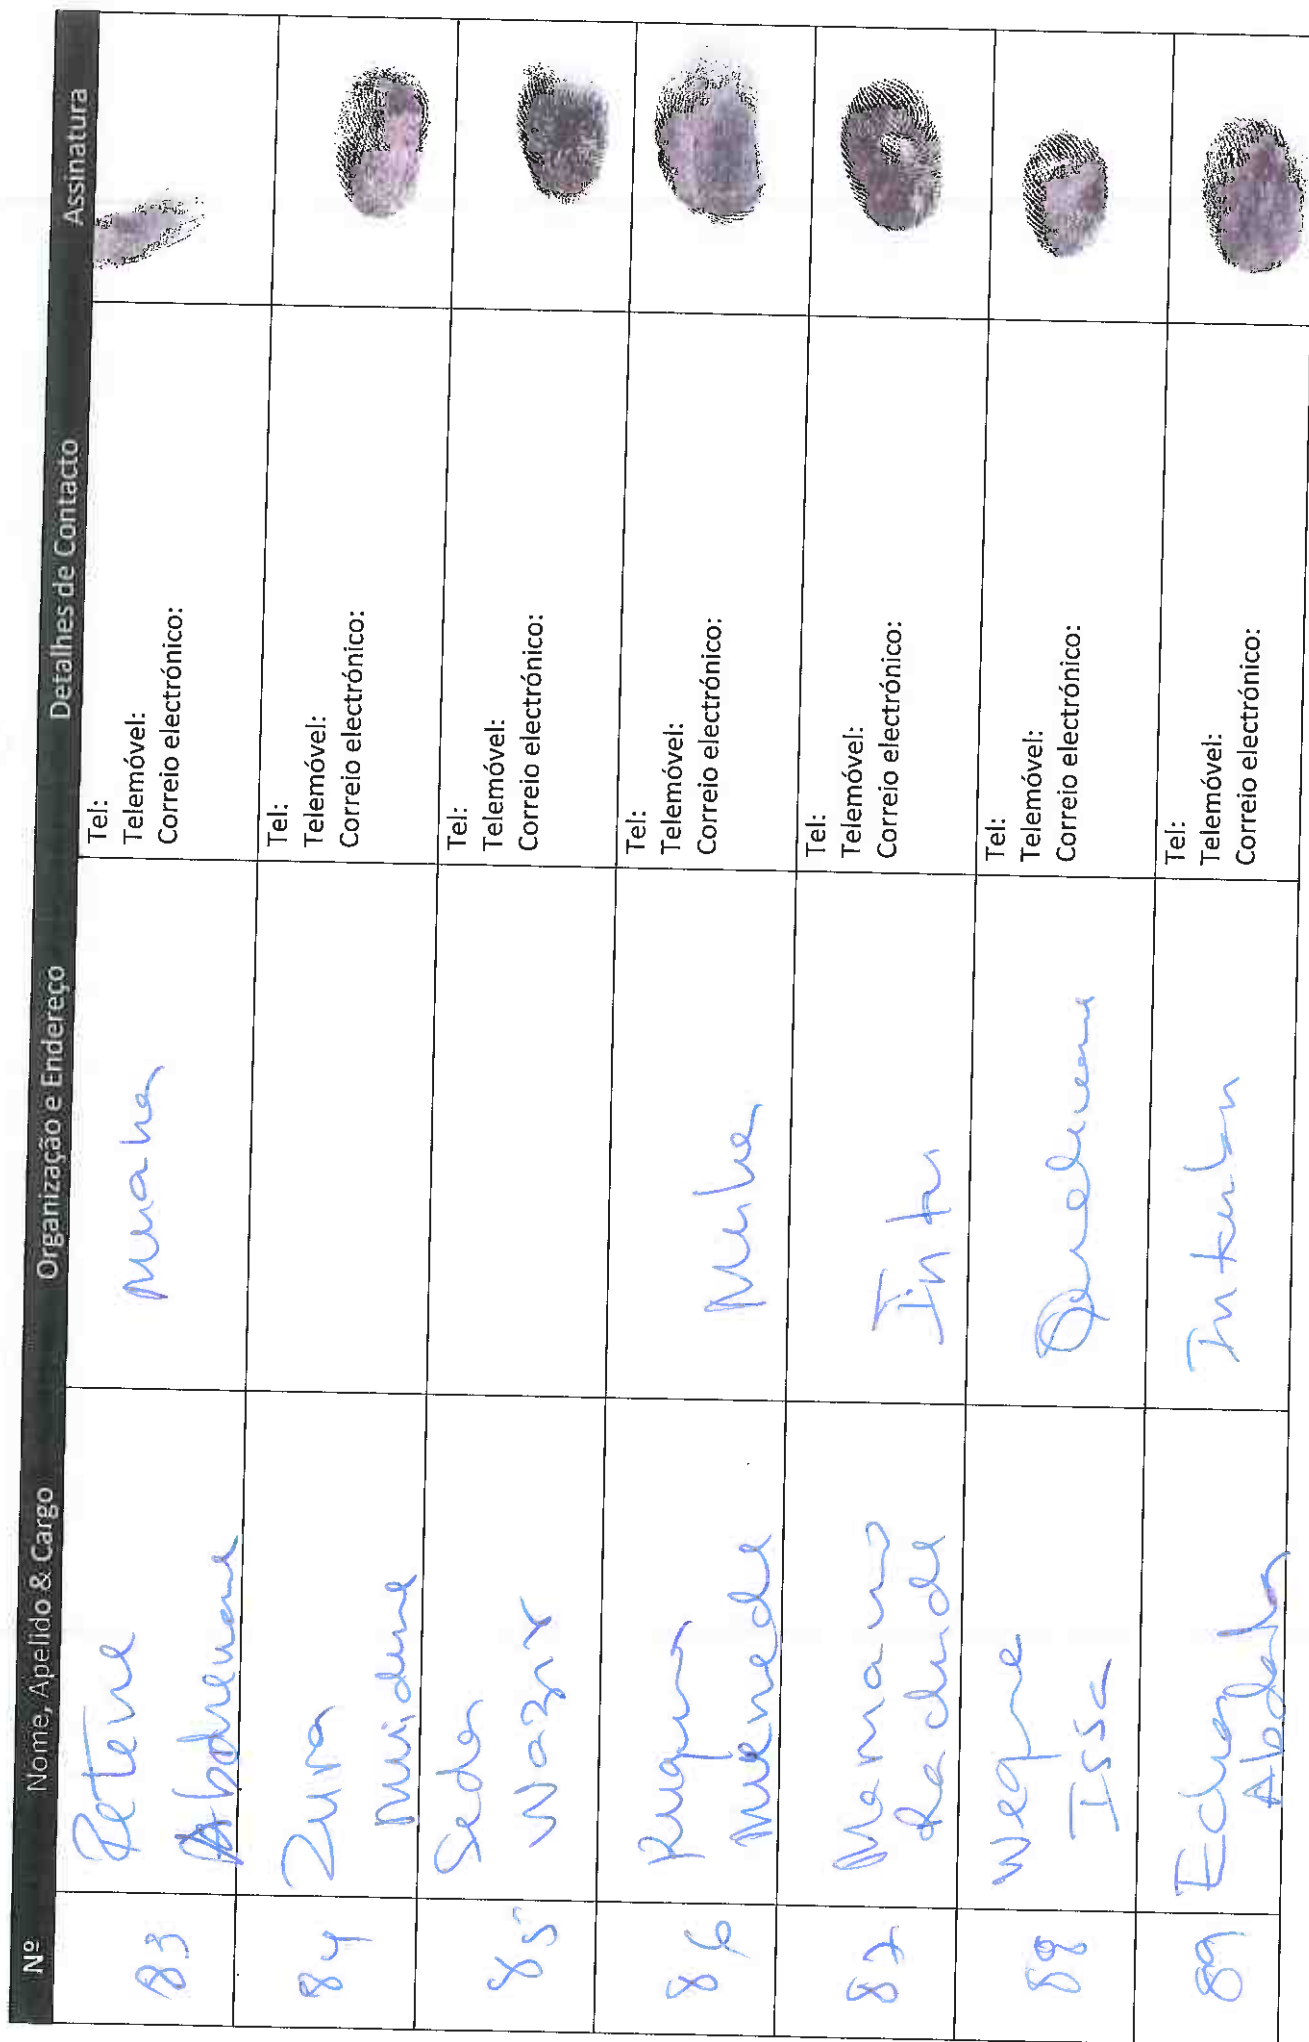 Nº Nome, Apelido & Cargo Organização e Endereço Detalhes de Contacto Assinatura
83 Abdremane muaha
Tel:
Telemóvel:
Correio electrónico:
84 Zura
Muidine
Tel:
Telemóvel:
Correio electrónico:
85 Seda
Waziry
Tel:
Telemóvel:
Correio electrónico:
86
Tel:
Telemóvel:
Correio electrónico:
87
Rachide
Tel:
Telemóvel:
Correio electrónico:
88
Issa
Tel:
Telemóvel:
Correio electrónico:
89 Echa
Abdala
Tel:
Telemóvel:
Correio electrónico: